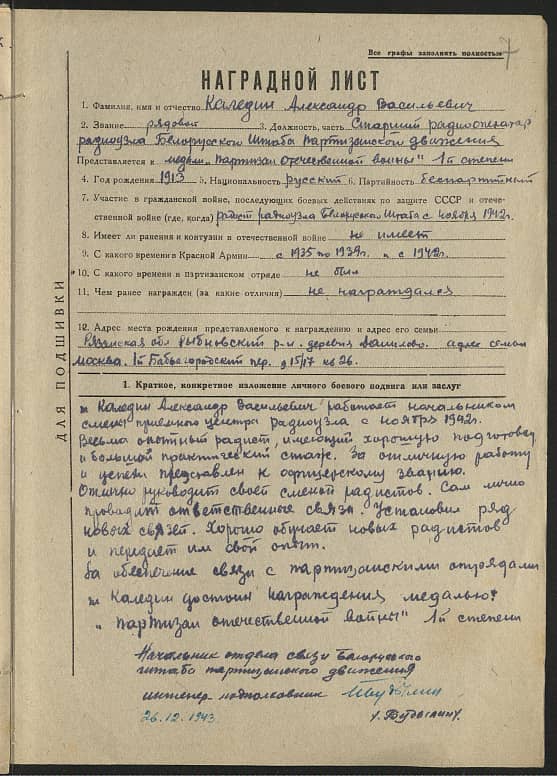 Все графы заполнять полностью
7
НАГРАДНОЙ ЛИСТ
1. Фамилия, имя и отчество Каледин Александр Васильевич
2. Звание рядовой 3. Должность, часть Старший радиооператор
радиоузла Белорусского Штаба партизанского движения
Представляется к медали "Партизан отечественной войны" I й степени
4. Год рождения 1913 5. Национальность русский 6. Партийность беспартийный
7. Участие в гражданской войне, последующих боевых действиях по защите СССР и отече-
ственной войне (где, когда) радиоузла Белорусского Штаба с ноября 1942г.
8. Имеет ли ранения и контузии в отечественной войне не имеет
9. С какого времени в Красной Армии с 1935 по 1939г. и с 1942г.
10. С какого времени в партизанском отряде не был
11. Чем ранее награжден (за какие отличия) не награждался
12. Адрес места рождения представляемого к награждению и адрес его семьи
Рязанская обл Рыбновский р-н. деревня адрес семьи
Москва. 1й Бабьегородский пер. д 15/17 кв 26.
ДЛЯ ПОДШИВКИ
1. Краткое, конкретное изложение личного боевого подвига или заслуг
т. Каледин Александр Васильевич работает начальником
смены приемного центра радиоузла с ноября 1942г.
Весьма опытный радист, имеющий хорошую подготовку
и большой практический стаж. За отличную работу
и успехи представлен к офицерскому званию.
Отлично руководит своей сменой радистов. Сам лично
проводит ответственные связи. Установил ряд
новых связей. Хорошо обучает новых радистов
и передает им свой опыт.
За обеспечение связи с партизанскими отрядами
т. Каледин достоин награждения медалью
"Партизан отечественной войны" I й степени
Начальник отдела связи Белорусского
штаба партизанского движения
инженер подполковник
26.12.1943